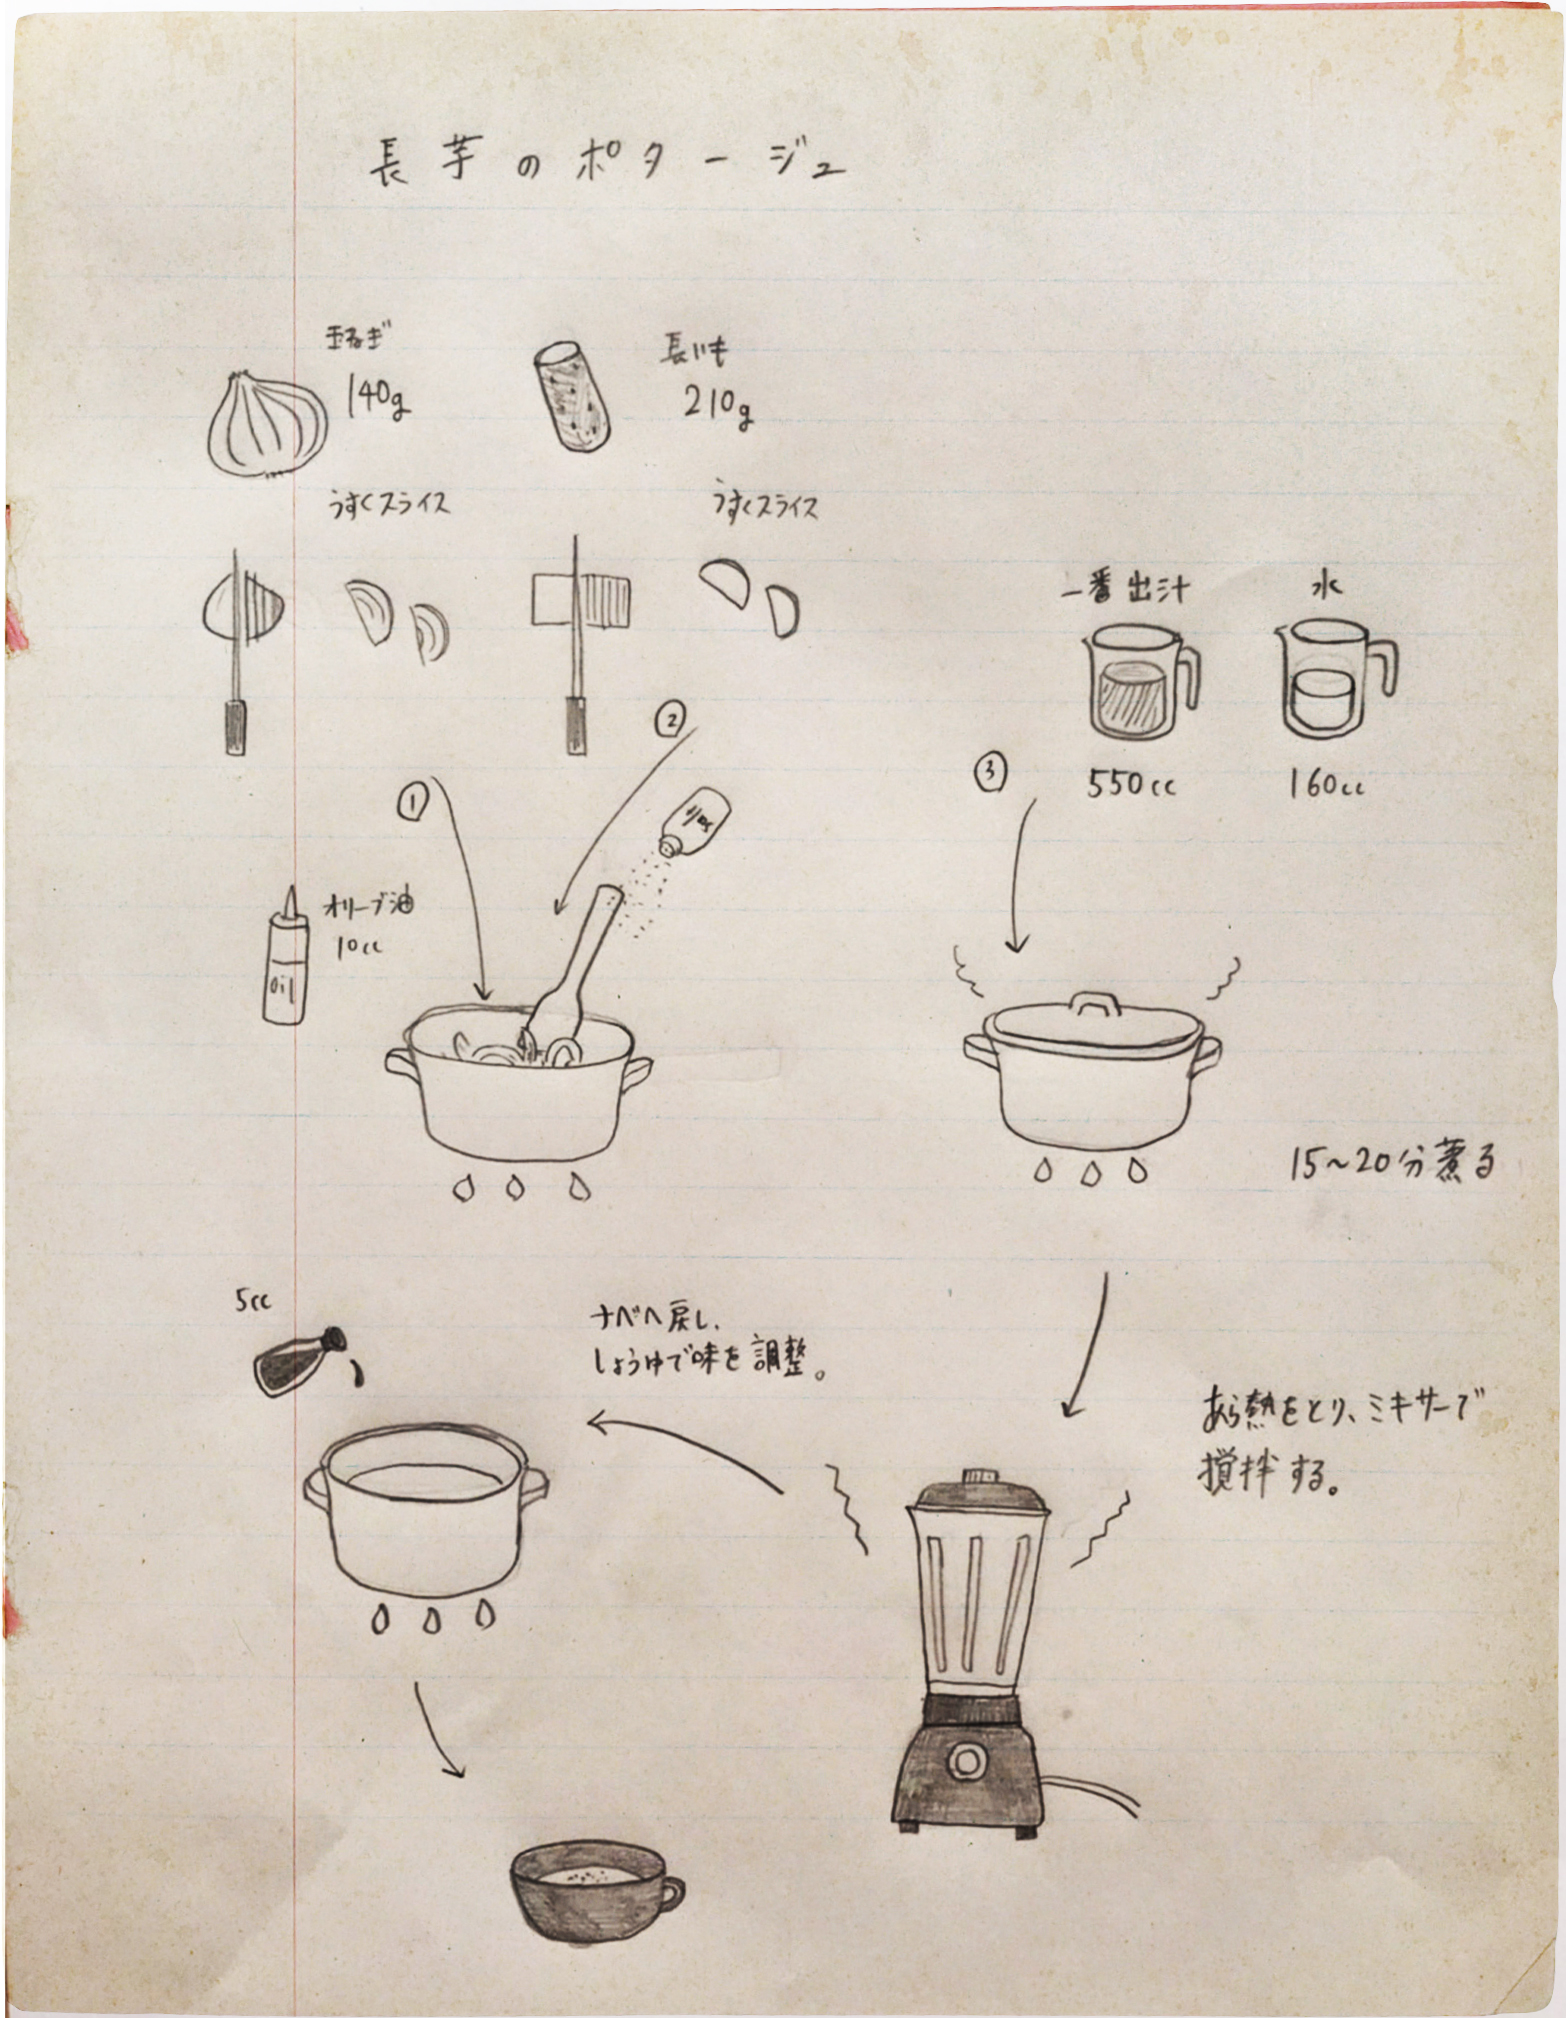 長芋のポタージュ
玉ねぎ
140g
長いも
210g
うすくスライス
うすくスライス
一番出汁
550cc
水
160cc
①
②
③
オリーブ油
10cc
Oil
15〜20分煮る
あら熱をとり、ミキサーで
撹拌する。
ナベへ戻し、
しょうゆで味を調整。
5cc